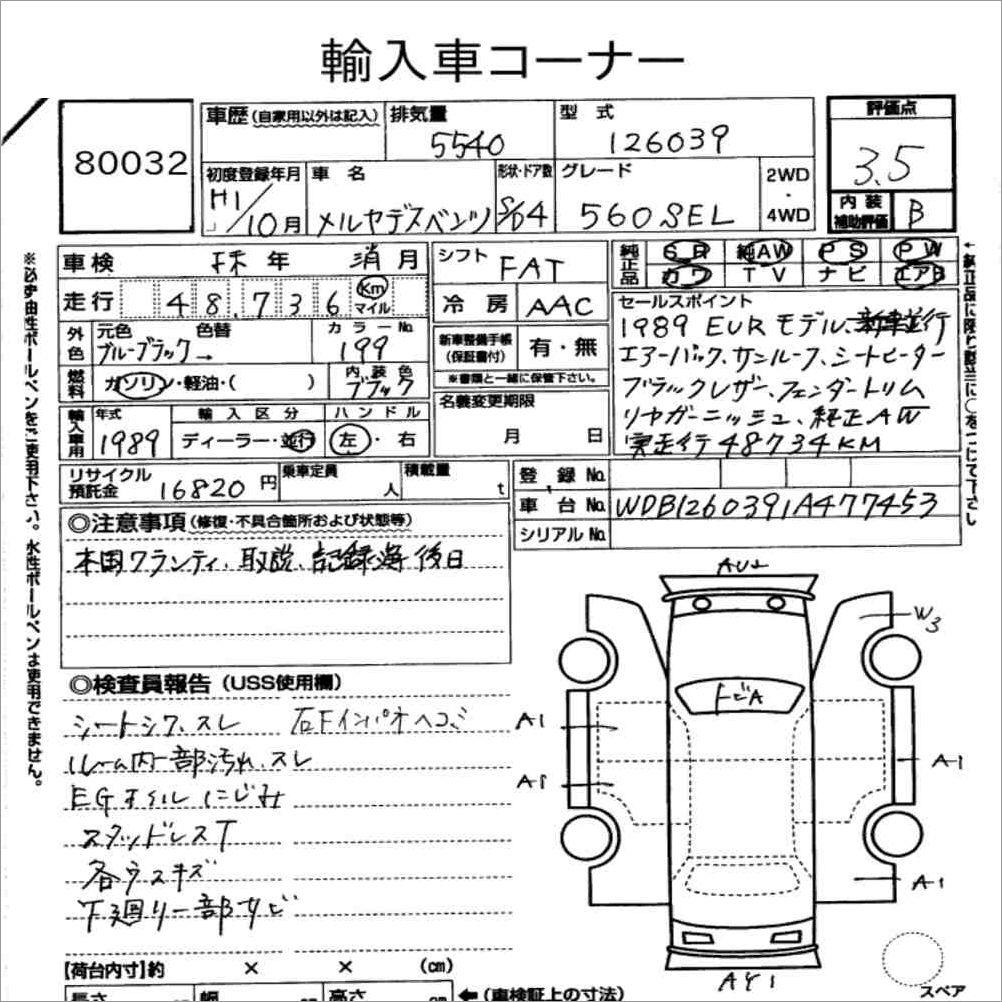 輸入車コーナー
80032
車歴 (自家用以外は記入)
排気量
5540
型式
126039
評価点
3.5
初度登録年月
H1/10月
車名
メルセデスベンツ
形状・ドア数
S/D4
グレード
560SEL
2WD
・
4WD
内装補助評価
B
車検
年
月
走行
48.736
Km
マイル
シフト
FAT
冷房
AAC
純正品
SR 純AW PS PW
カワ TV ナビ エアB
外色
元色
色替
ブルーブラック→
カラーNo.
199
燃料
ガソリン・軽油・( )
内装色
ブラック
新車整備手帳(保証書付)
有・無
※書類と一緒に保管下さい。
名義変更期限
月 日
セールスポイント
1989 EURモデル、新車並行
エアーバック、サンルーフ、シートヒーター
ブラックレザー、フェンダートリム
リヤガーニッシュ、純正AW
実走行48734KM
輸入車用
年式
1989
輸入区分
ディーラー・並行
ハンドル
左・右
リサイクル預託金
16820円
乗車定員
人
積載量
t
登録No.
車台No.
WDB1260391A477453
シリアルNo.
◎注意事項 (修復・不具合箇所および状態等)
本国ワランティ、取説、記録簿後日
◎検査員報告 (USS使用欄)
シートシワ、スレ 右Fインパネヘコミ
ルーム内一部汚れ、スレ
EGオイルにじみ
スタッドレスT
各ウスキズ
下廻り一部サビ
W3
トビA
A1
A1
A1
A1
AY1
スペア
【荷台内寸】約 × × (cm)
長さ
幅
高さ
←(車検証上の寸法)
※必ず油性ボールペンをご使用下さい。水性ボールペンは使用できません。